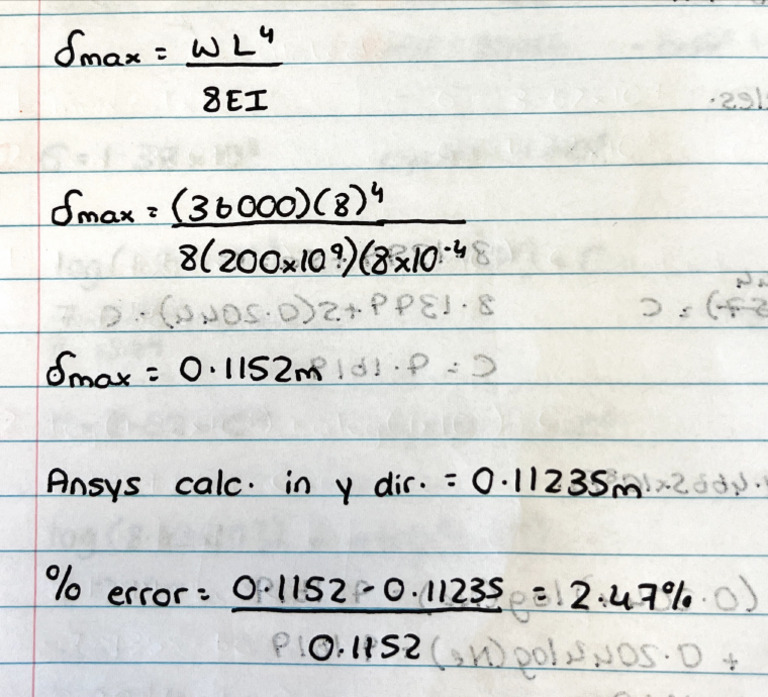 δmax = wL⁴
8EI
δmax = (36000)(8)⁴
8(200x10⁹)(8x10⁻⁴
δmax = 0.1152m
Ansys calc. in y dir. = 0.11235m
% error = 0.1152 - 0.11235 = 2.47%
0.1152